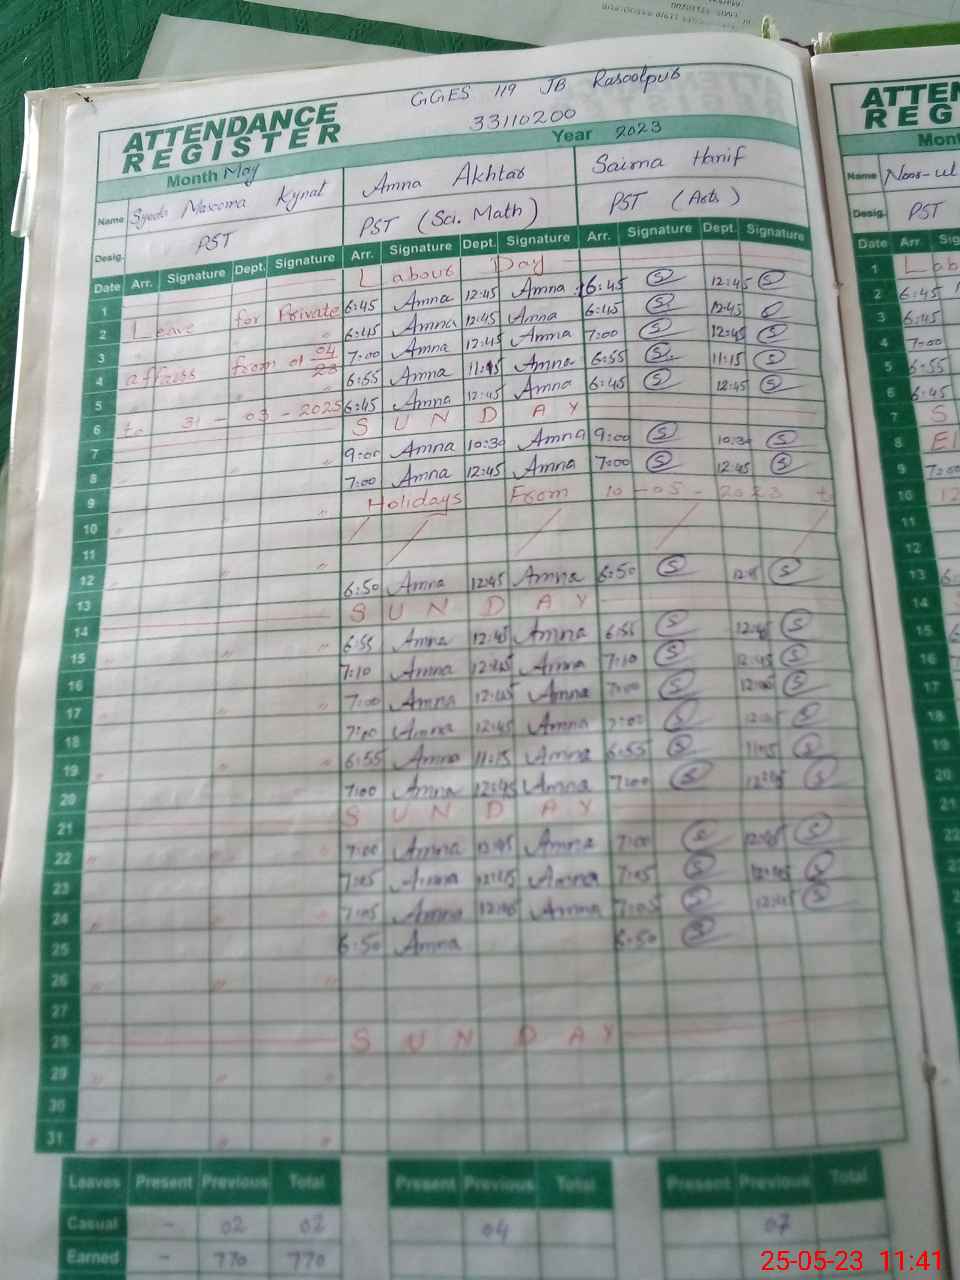 GGES 119 JB Rasoolpur
33110200
ATTENDANCE REGISTER
Month May Year 2023
Name Syeda Masooma Kynat Amna Akhtar Saima Hanif
Desig. PST PST (Sci. Math) PST (Arts)
Date Arr. Signature Dept. Signature Arr. Signature Dept. Signature Arr. Signature Dept. Signature
1 Labour Day
2 Leave for Private 6:45 Amna 12:45 Amna 6:45 S 12:45 S
3 6:45 Amna 12:45 Amna 6:45 S 12:45 S
4 affairs from 01 04 23 7:00 Amna 12:45 Amna 7:00 S 12:45 S
5 6:55 Amna 11:15 Amna 6:55 S 11:15 S
6 to 31-03-2025 6:45 Amna 12:45 Amna 6:45 S 12:45 S
7 SUNDAY
8 9:00 Amna 10:30 Amna 9:00 S 10:30 S
9 7:00 Amna 12:45 Amna 7:00 S 12:45 S
10 Holidays From 10-05-2023 to
11
12
13 6:50 Amna 12:45 Amna 6:50 S S
14 SUNDAY
15 6:55 Amna 12:45 Amna 6:55 S 12:45 S
16 7:10 Amna 12:45 Amna 7:10 S 12:45 S
17 7:00 Amna 12:45 Amna 7:00 S S
18 7:00 Amna 12:45 Amna 7:00 S S
19 6:55 Amna 11:15 Amna 6:55 S S
20 7:00 Amna 12:45 Amna 7:00 S 12:45 S
21 SUNDAY
22 7:00 Amna 12:45 Amna 7:00 S 12:45 S
23 7:05 Amna 12:45 Amna 7:05 S 12:45 S
24 7:05 Amna 12:45 Amna 7:05 S 12:45 S
25 6:50 Amna 6:50 S
26
27
28 SUNDAY
29
30
31
Leaves Present Previous Total Present Previous Total Present Previous Total
Casual - 02 02 04 07
Earned - 770 770
Name Noor-ul
Desig. PST
Date Arr.
1
2 6:45
3 6:45
4 7:00
5 6:55
6 6:45
7 S
8
9 7:00
10
11
12
13
14
15
16
17
18
19
20
21
22
23
25-05-23 11:41